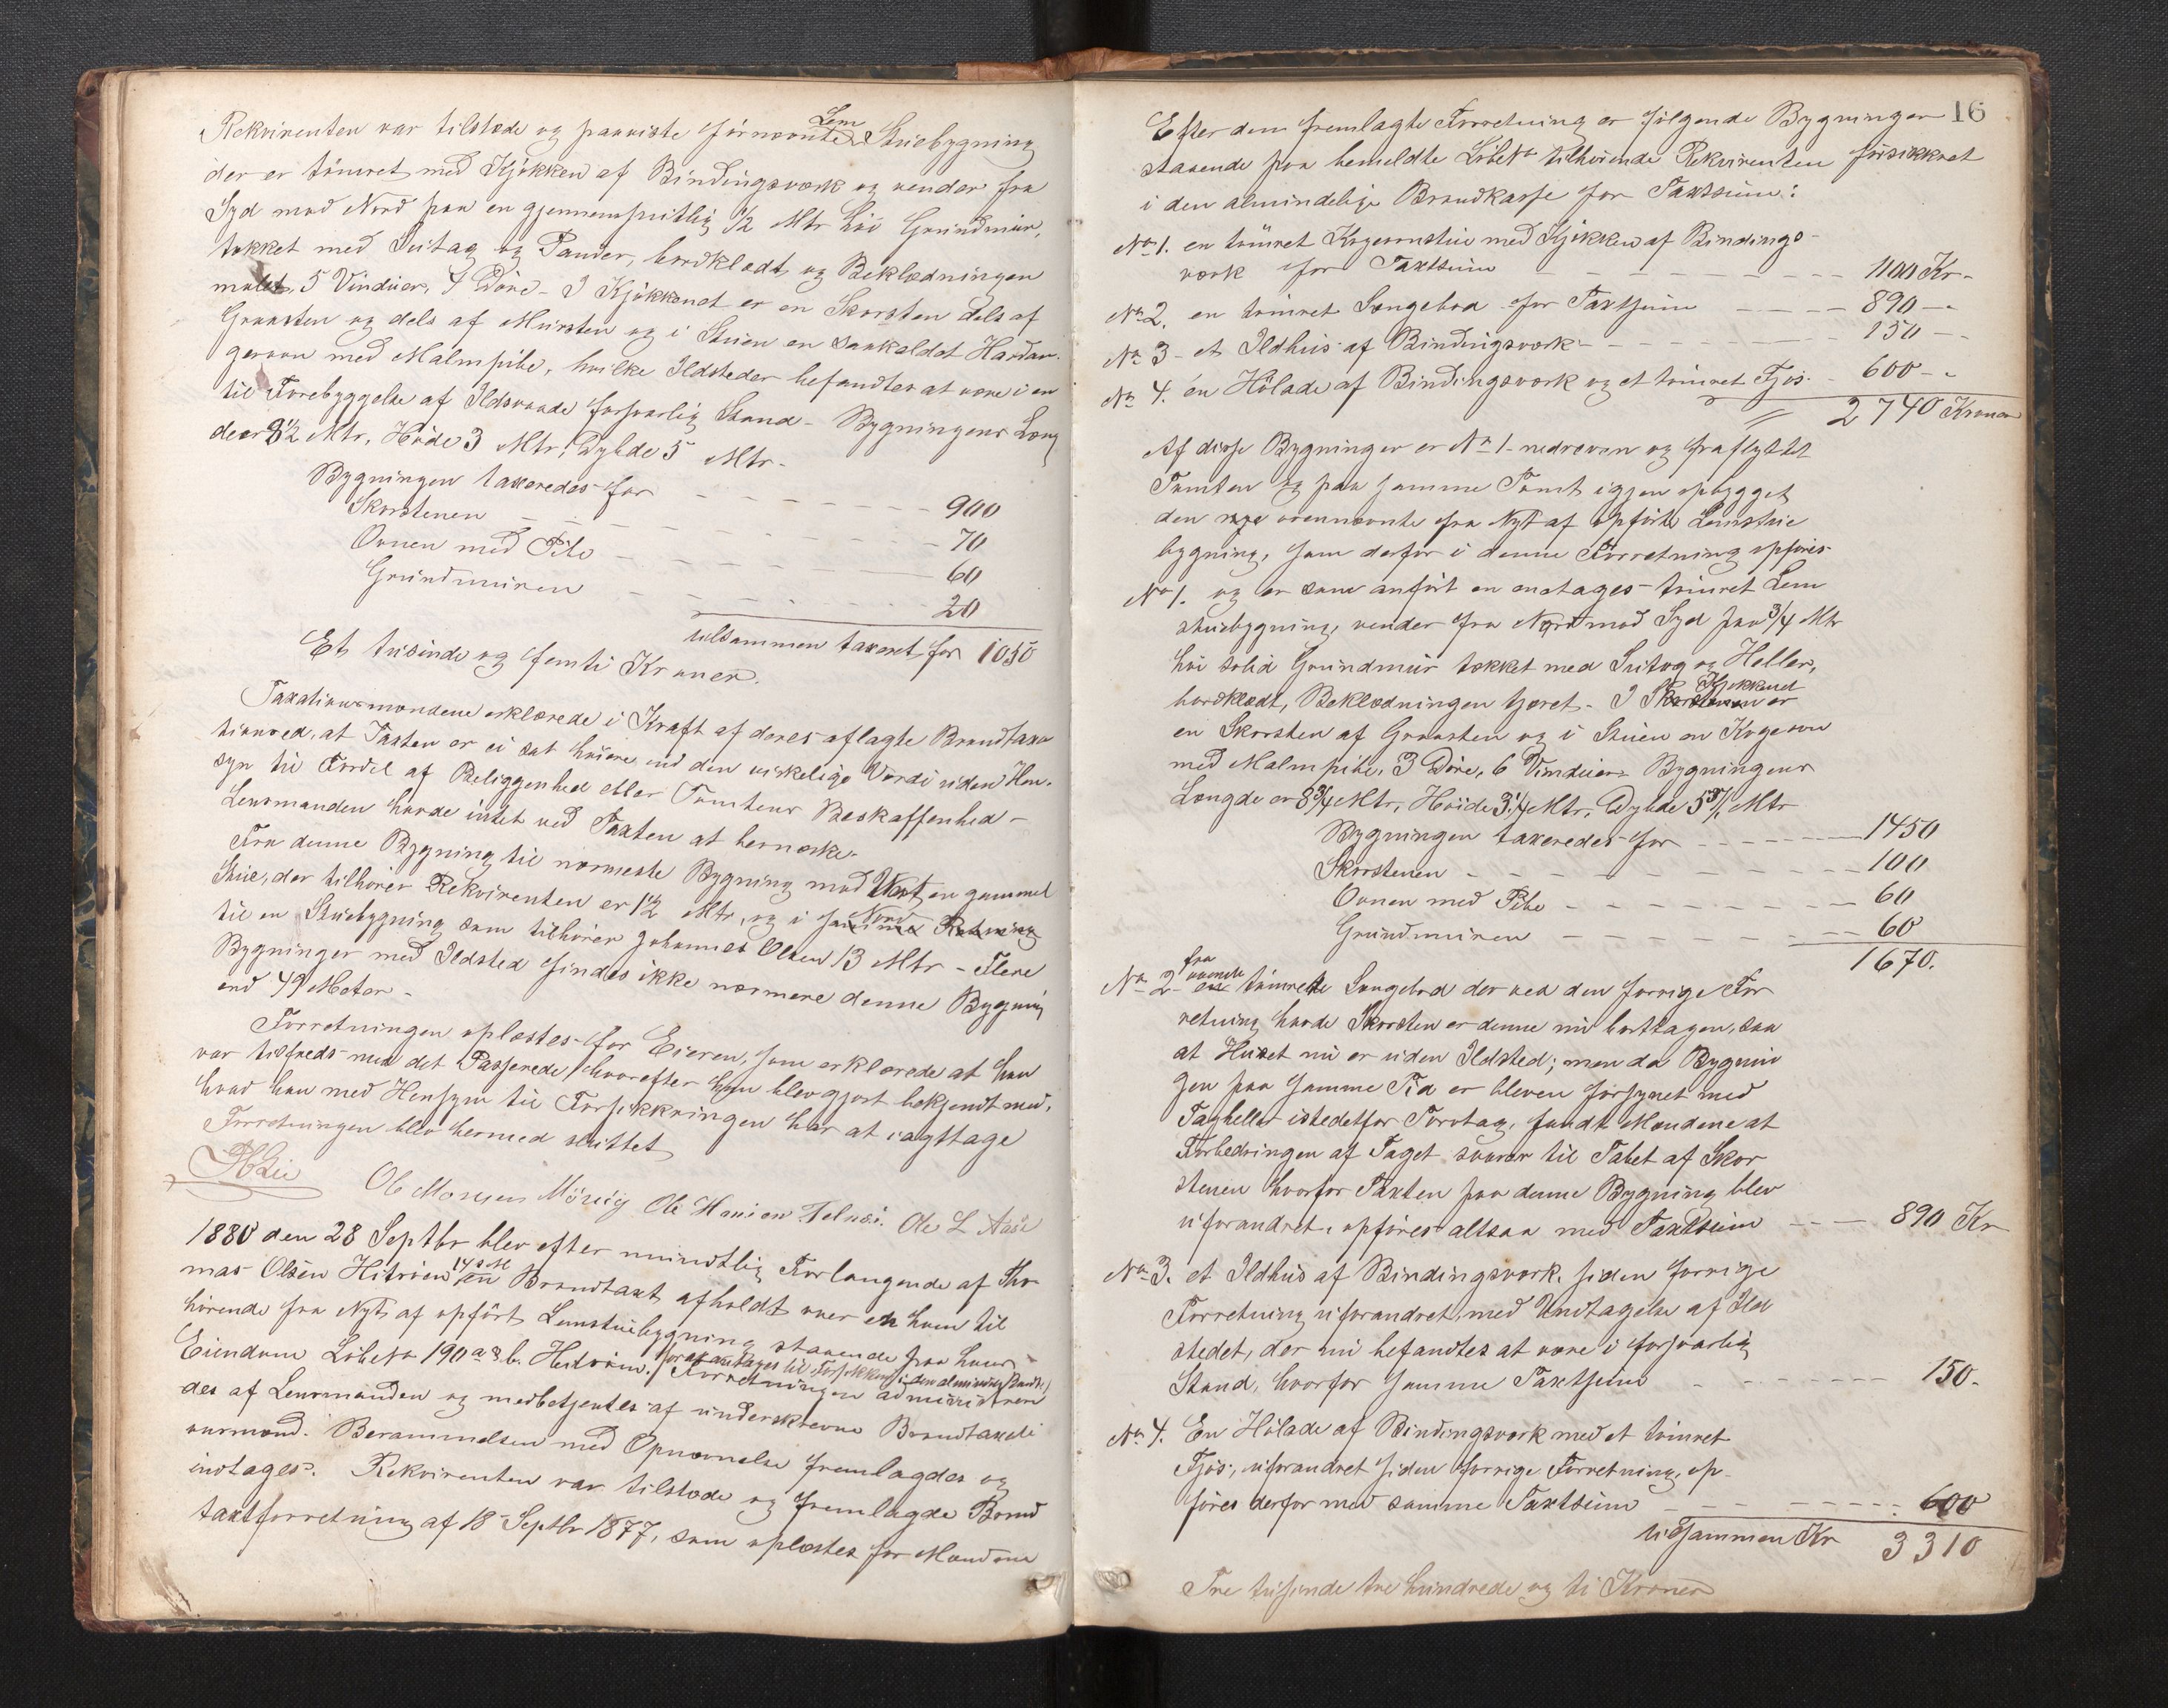 Rekvirenten var tilstede og paaviste førnævnte Lem Stuebygning
der er tömret med Kjökken af Bindingsværk og vender fra
Syd mod Nord paa en gjennemsnitlig 1/2 Mtr höi Grundmuur,
tækket med Sutag og Pander, bordklædt og Beklædningen
malet, 5 Vinduer, 4 Döre - I Kjökkenet er en Skorsten dels af
Graasten og dels af Mursten og i Stuen en saakaldet Hardan-
gerovn med Malmpibe, hvilke Ildsteder befandtes at være i en
til Forebyggelse af Ildsvaade forsvarlig Stand - Bygningens Læng
de er 8 1/2 Mtr, Höide 3 Mtr, Dybde 5 Mtr -
Bygningen taxeredes for 900
Skorstenen 70
Ovnen med Pibe 60
Grundmuren 20
tilsammen taxeret for 1050
Et tusinde og femti Kroner.
Taxationsmændene erklærede i Kraft af deres aflagte Brandtaxa
tionsed, at Taxten er ei sat høiere end den virkelige Værdi uden Hen-
syn til Fordel af Beliggenhed eller Tomtens Beskaffenhed -
Lensmanden havde intet ved Taxten at bemærke.
Fra denne Bygning til nærmeste Bygning mod Vest, en gammel
Stue, der tilhører Rekvirenten er 1 1/2 Mtr, og i Nord samme Retning
til en Stuebygning som tilhører Johannes Olsen 13 Mtr - Flere
Bygninger med Ildsted findes ikke nærmere denne Bygning
end 49 Meter -
Forretningen oplæstes for Eieren, som erklærede at han
var tilfreds med det Passerede, hvorefter han blev gjort bekjendt med,
hvad han med Hensyn til Forsikkringen har at iagttage
Forretningen blev hermed sluttet
Ole Monsen Ole Hansen Ole L Aase
1880 den 28 Septbr blev efter mundtlig Forlangende af Tho
mas Olsen Hitvöen en Brandtaxt afholdt over en ham til
hörende fra Nyt af opfört Lemstuebygning staaende paa hans
Eiendom Löbe No 190 a & b. foretages til Forsikkring i den almindelige Brandk:
Forretningen administrere
des af Lensmanden og medbetjentes af underskrevne Brandtaxti
onsmænd. Berammelsen med Opnævnelse fremlagdes og
indtages. Rekvirenten var tilstede og fremlagde Brand
taxtforretning af 18 Septbr 1877, som oplæstes for Mændene
16
Efter den fremlagte Forretning er fölgende Bygninger
staaende paa bemeldte Löbe No tilhörende Rekvirenten forsikkret
i den almindelige Brandkasse for Taxtsum:
No 1. en tömret Kogeovnstue med Kjökken af Bindings-
værk for Taxtsum 1100 Kr -
No 2. en tömret Sengebod for Taxtsum 890 -
No 3 - et Ildhus af Bindingsværk 150 -
No 4. en Hölade af Bindingsværk og et tömret Fjös 600 -
2740 Kroner
Af disse Bygninger er No 1 nedreven og fraflyttet
Tomten og paa samme Tomt igjen opbygget
den nye ovennævnte fra Nyt af opförte Lemstue
bygning, som derfor i denne Forretning opföres
No 1. og er som anfört en enetages tömret Lem
stuebygning, vender fra Nord mod Syd paa 3/4 Mtr
höi solid Grundmuur tækket med Sutag og Heller,
bordklædt, Beklædningen tjæret - I Kjökkenet Skorstenen er
en Skorsten af Graasten og i Stuen en Kogeovn
med Malmpibe, 3 Döre, 6 Vinduer - Bygningens
Længde er 8 3/4 Mtr, Höide 3 1/4 Mtr, Dybde 5 3/4 Mtr
Bygningen taxeredes for 1450
Skorstenen 100
Ovnen med Pibe 60
Grundmuren 60
1670.
No 2 - en tömrede Sengebod der ved den forrige For
retning havde Skorsten er denne nu borttagen, saa
at Huset nu er uden Ildsted; men da Bygnin
gen paa samme Tid er bleven forsynet med
Tagheller istedetfor Torvtag, fandt Mændene at
Forbedringen af Taget svarer til Tabet af Skor
stenen hvorfor Taxten paa denne Bygning blev
uforandret, opföres altsaa med Taxtsum 890 Kr
No 3. et Ildhus af Bindingsværk, siden forrige
Forretning uforandret, med Undtagelse af Ild
stedet, der nu befandtes at være i forsvarlig
Stand, hvorfor samme Taxtsum 150 -
No 4. En Hölade af Bindingsværk med et tömret
Fjös, uforandret siden forrige Forretning, op-
föres derfor med samme Taxtsum 600
tilsammen Kr 3310
Tre tusinde tre hundrede og ti Kroner